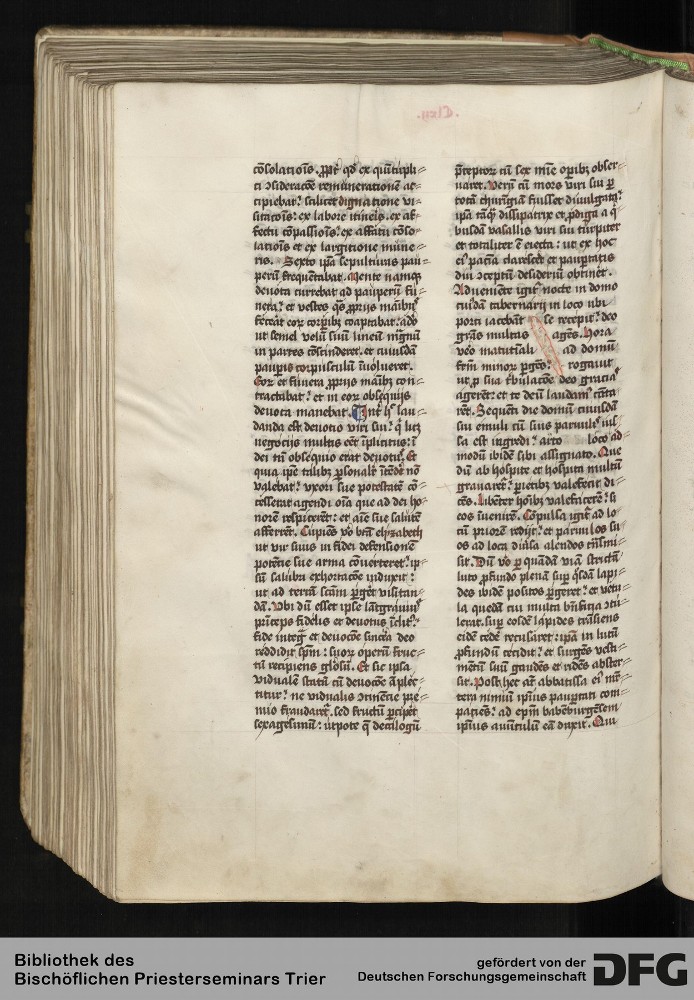 .Clxij.
cōsolatiōis. ꝓpt̄ qd̄ ex qui̅tupli⸗
ci ↄsideracōe remuneratioem̄ ac⸗
cipiebat? scilicet dignatione vi⸗
sitatiōis: ex labore itineis. ex af⸗
fectu cōpassiōis: ex affatu cōso⸗
latiōis et ex largitione mune⸗
ris. Sexto ipa̅ sepulturis pau⸗
peru̅ frequentabat. Mente namq̨
deuota currebat ad pauperu̅ fu⸗
nera? et vestes q̄s ꝓprijs manib?
fecerat eor̄ corꝑibꝫ coaptabat: ado̅
ut semel velu̅ suu̅ lineu̅ mgnu̅
in partes cōscinderet. et cuiusda̅
pauꝑis corpusculu̅ inuolueret.
Eor̄ et funera ꝓprijs maib̄ con⸗
tractabat? et in eor̄ obseqüijs
deuota manebat. Int̄ h̄ lau⸗
danda est deuotio viri sui? q̄ licꝫ
negocijs multis eēt īplicitus: ī
dei tn̄ obsequio erat deuotꝰ. Et
quia ipē talibꝫ ꝑsonalit̄ ītēde n̄o
valebat? vxori sue potestatē cō⸗
cesserat agendi oīa que ad dei ho⸗
norē respicerēt: et aīe sue salutē
afferrēt. Cupiēs vo bt̄a elyzabeth
ut vir suus in fidei defensionē
potētie sue arma cōuerteret? ip⸗
su̅ salub̄ exhortacōe induxit?
ut ad terrā scām ꝑget visitan⸗
dā. Vbi du̅ esset ipse lātgrauiꝰ
prīceps fidelis et deuotus īclitꝰ
fide inteḡ et deuocōe sincēa deo
reddidit spm̄: suor̄ operu̅ fruc⸗
tu̅ recipiens glōsu̅. Et sic ipsa
vidualē statu̅ cu̅ deuocōe āplec⸗
titur? ne vidualis ↄtinēcie pre⸗
mio fraudaret̄. sed fructu̅ ꝑcipēt
sexagesimu̅: utpote q̄ decalogu̅
p̄ceptor̄ cu̅ sex mīe oꝑibꝫ obser⸗
uaret. Veru̅ cu̅ mors viri sui ꝑ
totā thuringiā fuisset diuulgata?
ipā tāq̄ dissipatrix et ꝓdiga a q̄⸗
busdā vasallis viri sui turpiter
et totaliter ē eiecta: ut ex hoc
ei paciā claresc̄et et pauptatis
diu ↄceptu̅ desideriu̅ obtinet̄.
Adueniēte igit̄ nocte in domo
cuidā tabernarij in loco ubi
porci iacebāt se recepit? deo
grās multas agēs. Hora
vēo matutiali ad domu̅
frm̄ minor ꝑgēs? rogauit
ut ꝓ sua tribulacōe deo gracias
agerēt: et te deu̅ laudamꝰ cāta⸗
rēt. Sequēti die domu̅ cuiusdā
sui emuli cu̅ suis paruulis ius⸗
sa est ingredi? arto loco ad⸗
modu̅ ibidē sibi assignato. Que
du̅ ab hospite et hospita multu̅
grauaret̄? pietibꝫ valefecit di⸗
cēs. Libēter hoībꝫ valefacerē? si
eos īuenirē. Cōpulsa igit̄ ad lo⸗
cu̅ priorē redijt? et paruulos su⸗
os ad loca diūsa alendos trāsmi⸗
sit. Du̅ vo ꝑ quādā viā strictā
luto ꝓfundo plenā suꝑ q̄sdā lapi⸗
des ibidē positos ꝑgeret? et vetu⸗
la quedā cui multa bn̄ficia ↄtu⸗
lerat. suꝑ eosdē lapides trāsiens
eidē cedē recusaret: ipā in lutu̅
ꝓfundu̅ cecidit? et surgēs vesti⸗
mētu̅ suu̅ gaudēs et ridēs abster⸗
sit. Post hec aūt abbatissa eiꝰ m̄⸗
tera nimiu̅ ipiꝰs paupertati com⸗
paciēs? ad epm̄ babēburgēsem
ipiꝰs auu̅culu̅ eā duxit. Qui
Bibliothek des
Bischöflichen Priesterseminars Trier
gefördert von der
Deutschen Forschungsgemeinschaft
DFG